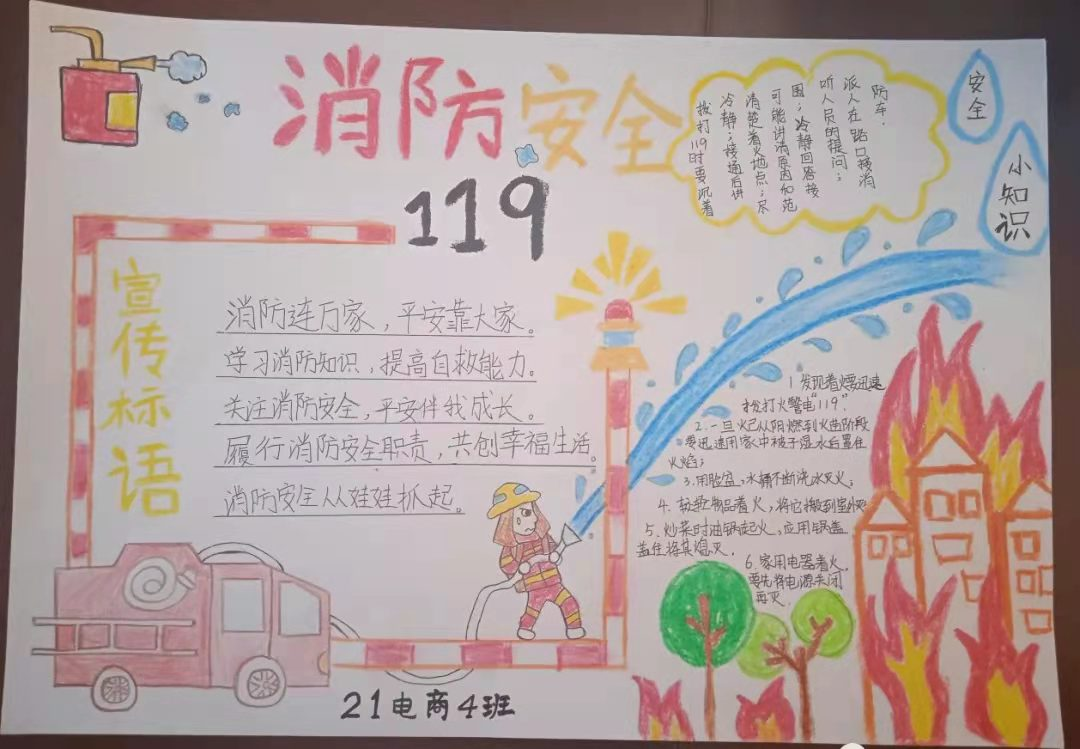 消防安全
119
拨打119时要沉着
冷静;接通后讲
清楚着火地点;尽
可能讲清原因和范
围;冷静回答接
听人员的提问;
派人在路口接消
防车.
安全
小知识
宣传标语
消防连万家,平安靠大家。
学习消防知识,提高自救能力。
关注消防安全,平安伴我成长。
履行消防安全职责,共创幸福生活。
消防安全从娃娃抓起。
1 发现着火要迅速
打火警电"119".
2.一旦火已从阴燃到火焰阶段
要迅速用家中被子湿水后置住
火焰;
3.用脸盆,水桶不断浇水灭火;
4.物品着火,将它搬到室外
5.炒菜时油锅起火,应用锅盖
盖住将其熄灭.
6.家用电器着火,
要先将电源关闭
再灭.
21电商4班